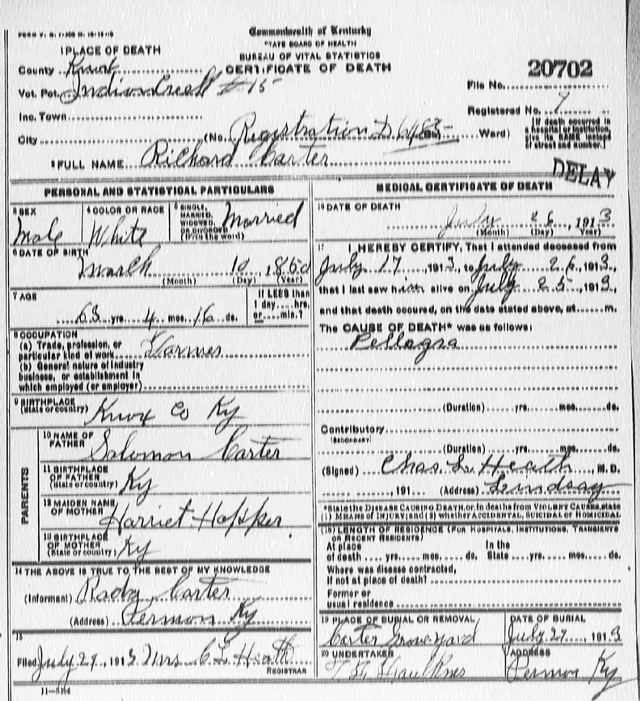 FORM V. S. 1-
Commonwealth of Kentucky
STATE BOARD OF HEALTH
BUREAU OF VITAL STATISTICS
CERTIFICATE OF DEATH
1 PLACE OF DEATH
County Knox
Vot. Pct. Indiancreek #15
Inc. Town
City
(No. Registration D. 6483 Ward)
20702
File No.
Registered No. 7
[If death occurred in a hospital or institution, give its NAME instead of street and number.]
2 FULL NAME Richard Carter
DELAY
PERSONAL AND STATISTICAL PARTICULARS
3 SEX
Male
4 COLOR OR RACE
White
5 SINGLE, MARRIED, WIDOWED, OR DIVORCED (Write the word)
Married
6 DATE OF BIRTH
March 10, 1850
(Month) (Day) (Year)
7 AGE
63 yrs. 4 mos. 16 ds.
If LESS than 1 day....hrs. or....min.?
8 OCCUPATION
(a) Trade, profession, or particular kind of work Farmer
(b) General nature of industry business, or establishment in which employed (or employer)
9 BIRTHPLACE (State or country)
Knox Co Ky
PARENTS
10 NAME OF FATHER
Solomon Carter
11 BIRTHPLACE OF FATHER (State or country)
Ky
12 MAIDEN NAME OF MOTHER
Harriet Hopper
13 BIRTHPLACE OF MOTHER (State or country)
Ky
14 THE ABOVE IS TRUE TO THE BEST OF MY KNOWLEDGE
(Informant) Carter
(Address) Permon Ky
15
Filed July 27, 1913 Mrs C L Heath
REGISTRAR
MEDICAL CERTIFICATE OF DEATH
16 DATE OF DEATH
July 26, 1913
(Month) (Day) (Year)
17 I HEREBY CERTIFY, That I attended deceased from
July 17 1913, to July 26, 1913,
that I last saw him alive on July 25, 1913,
and that death occured, on the date stated above, at....m.
The CAUSE OF DEATH* was as follows:
Pellagra
(Duration) yrs. mos. ds.
Contributory
(SECONDARY)
(Duration) yrs. mos. ds.
(Signed) Chas. L. Heath M.D.
, 191 (Address) Lindsay
*State the DISEASE CAUSING DEATH, or, in deaths from VIOLENT CAUSES, state
(1) MEANS OF INJURY; and (2) whether ACCIDENTAL, SUICIDAL or HOMICIDAL
(18) LENGTH OF RESIDENCE (FOR HOSPITALS, INSTITUTIONS, TRANSIENTS OR RECENT RESIDENTS)
At place of death yrs. mos. ds.
In the State yrs. mos. ds.
Where was disease contracted, if not at place of death?
Former or usual residence
19 PLACE OF BURIAL OR REMOVAL
Carter Graveyard
DATE OF BURIAL
July 27, 1913
20 UNDERTAKER
Faulkner
ADDRESS
Permon Ky